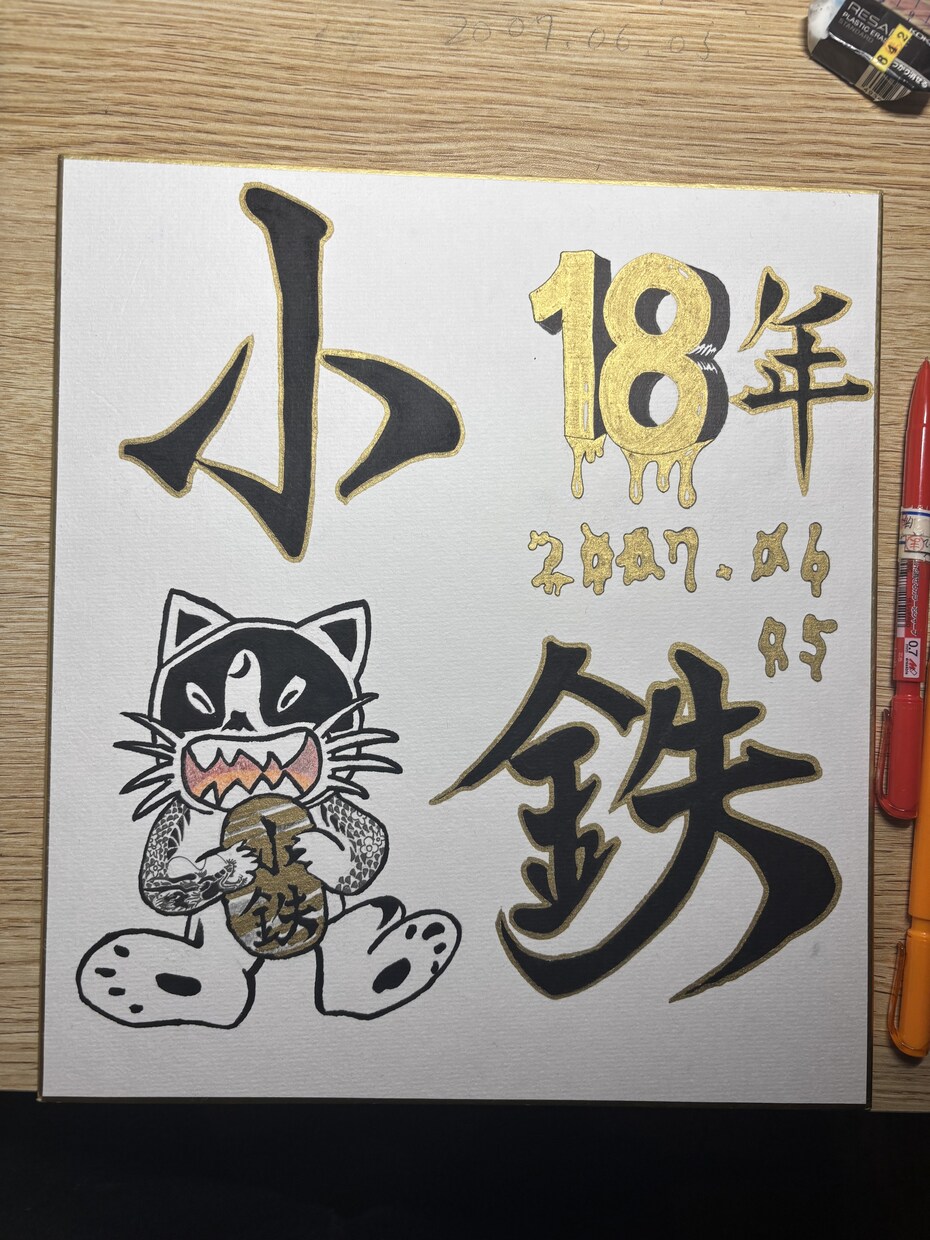 2007.06.05
RESA
PLASTIC ERAS
STANDARD
842
小
18年
2007.06
05
鉄
小
鉄
0.7